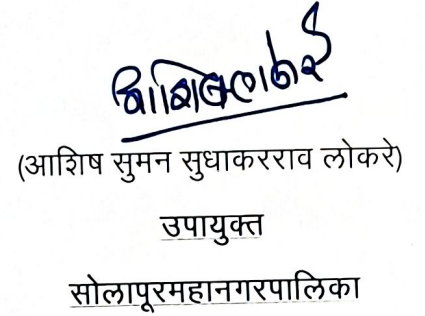 आशिष लोकरे
(आशिष सुमन सुधाकरराव लोकरे)
उपायुक्त
सोलापूरमहानगरपालिका